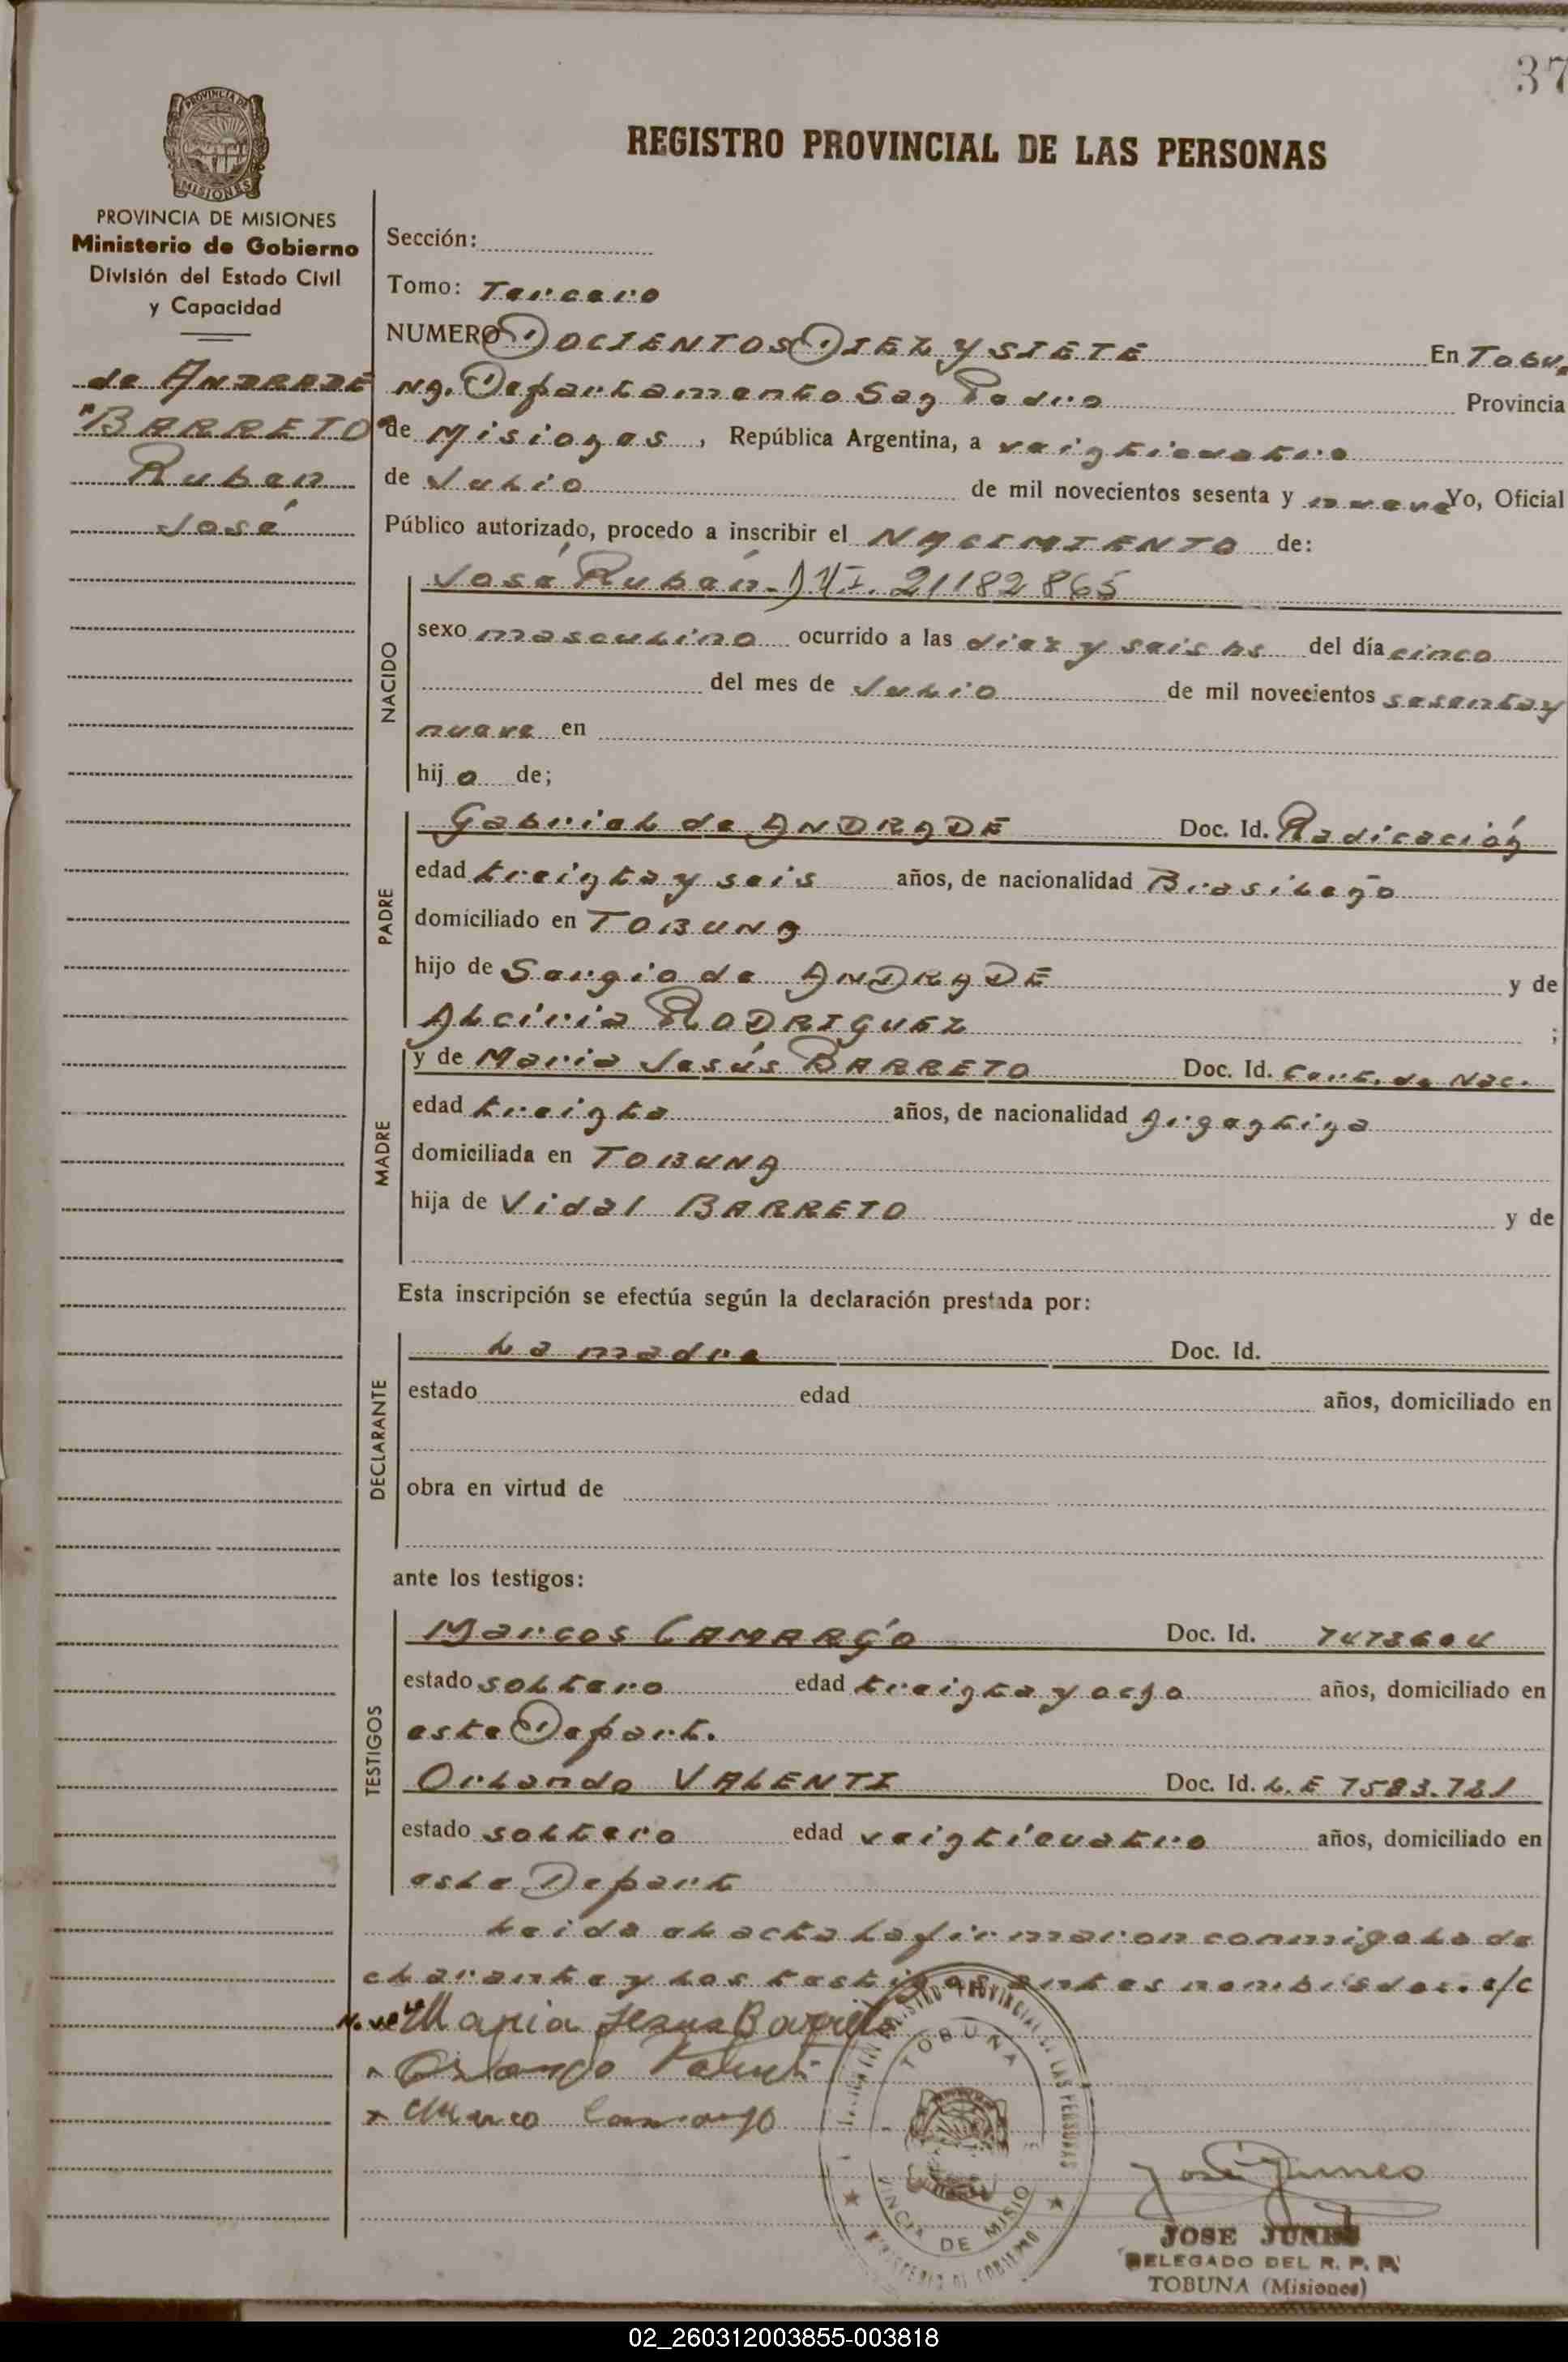 37
REGISTRO PROVINCIAL DE LAS PERSONAS
PROVINCIA DE
MISIONES
PROVINCIA DE MISIONES
Ministerio de Gobierno
División del Estado Civil
y Capacidad
de ANDRADE
"BARRETO"
Ruben
José
Sección:
Tomo: Tercero
NUMERO DOCIENTOS DIEZ Y SIETE En Tobu,
na. Departamento San Pedro Provincia
de Misiones, República Argentina, a veinticuatro
de Julio de mil novecientos sesenta y nueve Yo, Oficial
Público autorizado, procedo a inscribir el NACIMIENTO de:
NACIDO
José Rubén - DNI. 21182865
sexo masculino ocurrido a las diez y seis hs del día cinco
del mes de Julio de mil novecientos sesenta y
nueve en
hijo de;
PADRE
Gabriel de ANDRADE Doc. Id. Radicación
edad treinta y seis años, de nacionalidad Brasileño
domiciliado en TOBUNA
hijo de Sergio de ANDRADE y de
Alciria RODRIGUEZ ;
MADRE
y de Maria Jesús BARRETO Doc. Id. Cert. de Nac.
edad treinta años, de nacionalidad Argentina
domiciliada en TOBUNA
hija de Vidal BARRETO y de
Esta inscripción se efectúa según la declaración prestada por:
DECLARANTE
La madre Doc. Id.
estado edad años, domiciliado en
obra en virtud de
ante los testigos:
TESTIGOS
Marcos CAMARGO Doc. Id.
estado soltero edad treinta y ocho años, domiciliado en
este Depart.
Orlando VALENTI Doc. Id. L.E 7583.721
estado soltero edad veinticuatro años, domiciliado en
este Depart
Leida el acta la firmaron conmigo la de
clarante y los testigos antes nombrados. e/c
Maria Jesus Barreto
Orlando Valenti
Marco Camargo
REGISTRO PROVINCIAL DE LAS PERSONAS
TOBUNA
PROVINCIA DE MISIONES
MINISTERIO DE GOBIERNO
José Junes
JOSE JUNES
DELEGADO DEL R. P. P.
TOBUNA (Misiones)
02_260312003855-003818